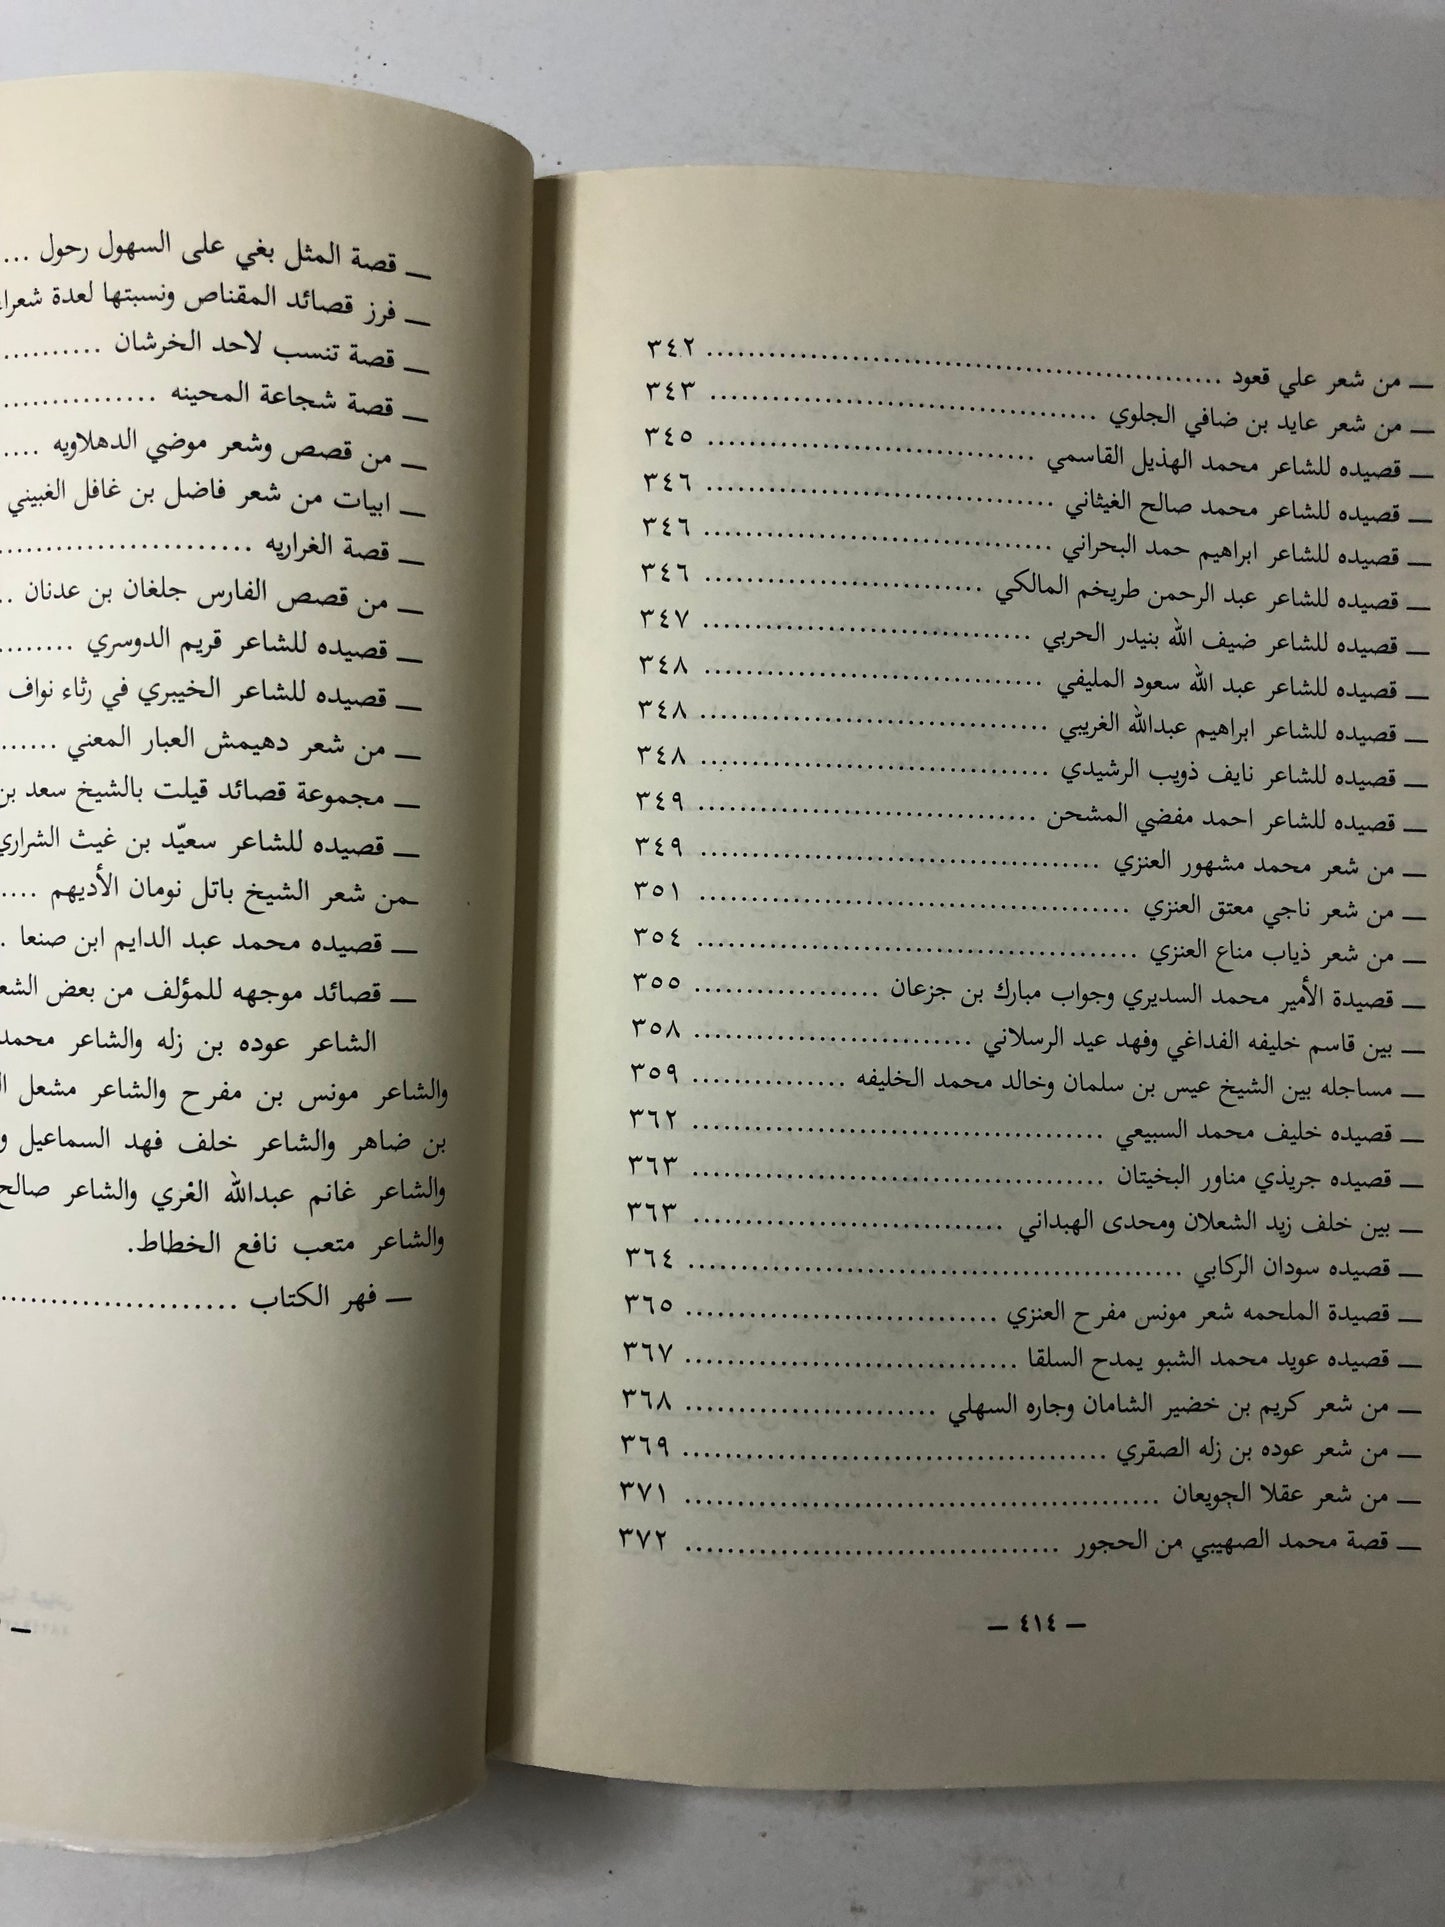 — من شعر علي قعود ........ ٣٤٢
— من شعر عايد بن ضافي الجلوي ........ ٣٤٣
— قصيده للشاعر محمد الهذيل القاسمي ........ ٣٤٥
— قصيده للشاعر محمد صالح الغيثاني ........ ٣٤٦
— قصيده للشاعر ابراهيم حمد البحراني ........ ٣٤٦
— قصيده للشاعر عبد الرحمن طريخم المالكي ........ ٣٤٦
— قصيده للشاعر ضيف الله بنيدر الحربي ........ ٣٤٧
— قصيده للشاعر عبد الله سعود المليفي ........ ٣٤٨
— قصيده للشاعر ابراهيم عبدالله الغريبي ........ ٣٤٨
— قصيده للشاعر نايف ذويب الرشيدي ........ ٣٤٨
— قصيده للشاعر احمد مفضي المشحن ........ ٣٤٩
— من شعر محمد مشهور العنزي ........ ٣٤٩
— من شعر ناجي معتق العنزي ........ ٣٥١
— من شعر ذياب مناع العنزي ........ ٣٥٤
— قصيدة الأمير محمد السديري وجواب مبارك بن جزعان ........ ٣٥٥
— بين قاسم خليفه الفداغي وفهد عيد الرسلاني ........ ٣٥٨
— مساجله بين الشيخ عيس بن سلمان وخالد محمد الخليفه ........ ٣٥٩
— قصيده خليف محمد السبيعي ........ ٣٦٢
— قصيده جريذي مناور البخيتان ........ ٣٦٣
— بين خلف زيد الشعلان ومحدى الهبداني ........ ٣٦٣
— قصيده سودان الركابي ........ ٣٦٤
— قصيدة الملحمه شعر مونس مفرح العنزي ........ ٣٦٥
— قصيده عويد محمد الشبو يمدح السلقا ........ ٣٦٧
— من شعر كريم بن خضير الشامان وجاره السهلي ........ ٣٦٨
— من شعر عوده بن زله الصقري ........ ٣٦٩
— من شعر عقلا الجويعان ........ ٣٧١
— قصة محمد الصهيبي من الحجور ........ ٣٧٢
— ٤١٤ —
— قصة المثل بغي على السهول رحول ...
— فرز قصائد المقناص ونسبتها لعدة
— قصة تنسب لاحد الخرشان ........
— قصة شجاعة المحينه ........
— من قصص وشعر موضي الدهلاويه ....
— ابيات من شعر فاضل بن غافل الغبيني
— قصة الغراريه ........
— من قصص الفارس جلغان بن عدنان ..
— قصيده للشاعر قريم الدوسري ........
— قصيده للشاعر الخيبري في رثاء نواف
— من شعر دهيمش العبار المعني ......
— مجموعة قصائد قيلت بالشيخ سعد بن
— قصيده للشاعر سعيّد بن غيث الشراري
— من شعر الشيخ باتل نومان الأديهم ....
— قصيده محمد عبد الدايم ابن صنعا .
— قصائد موجهه للمؤلف من بعض
الشاعر عوده بن زله والشاعر محمد
والشاعر مونس بن مفرح والشاعر مشعل
بن ضاهر والشاعر خلف فهد السماعيل
والشاعر غانم عبدالله الغزي والشاعر صالح
والشاعر متعب نافع الخطاط.
— فهر الكتاب ........